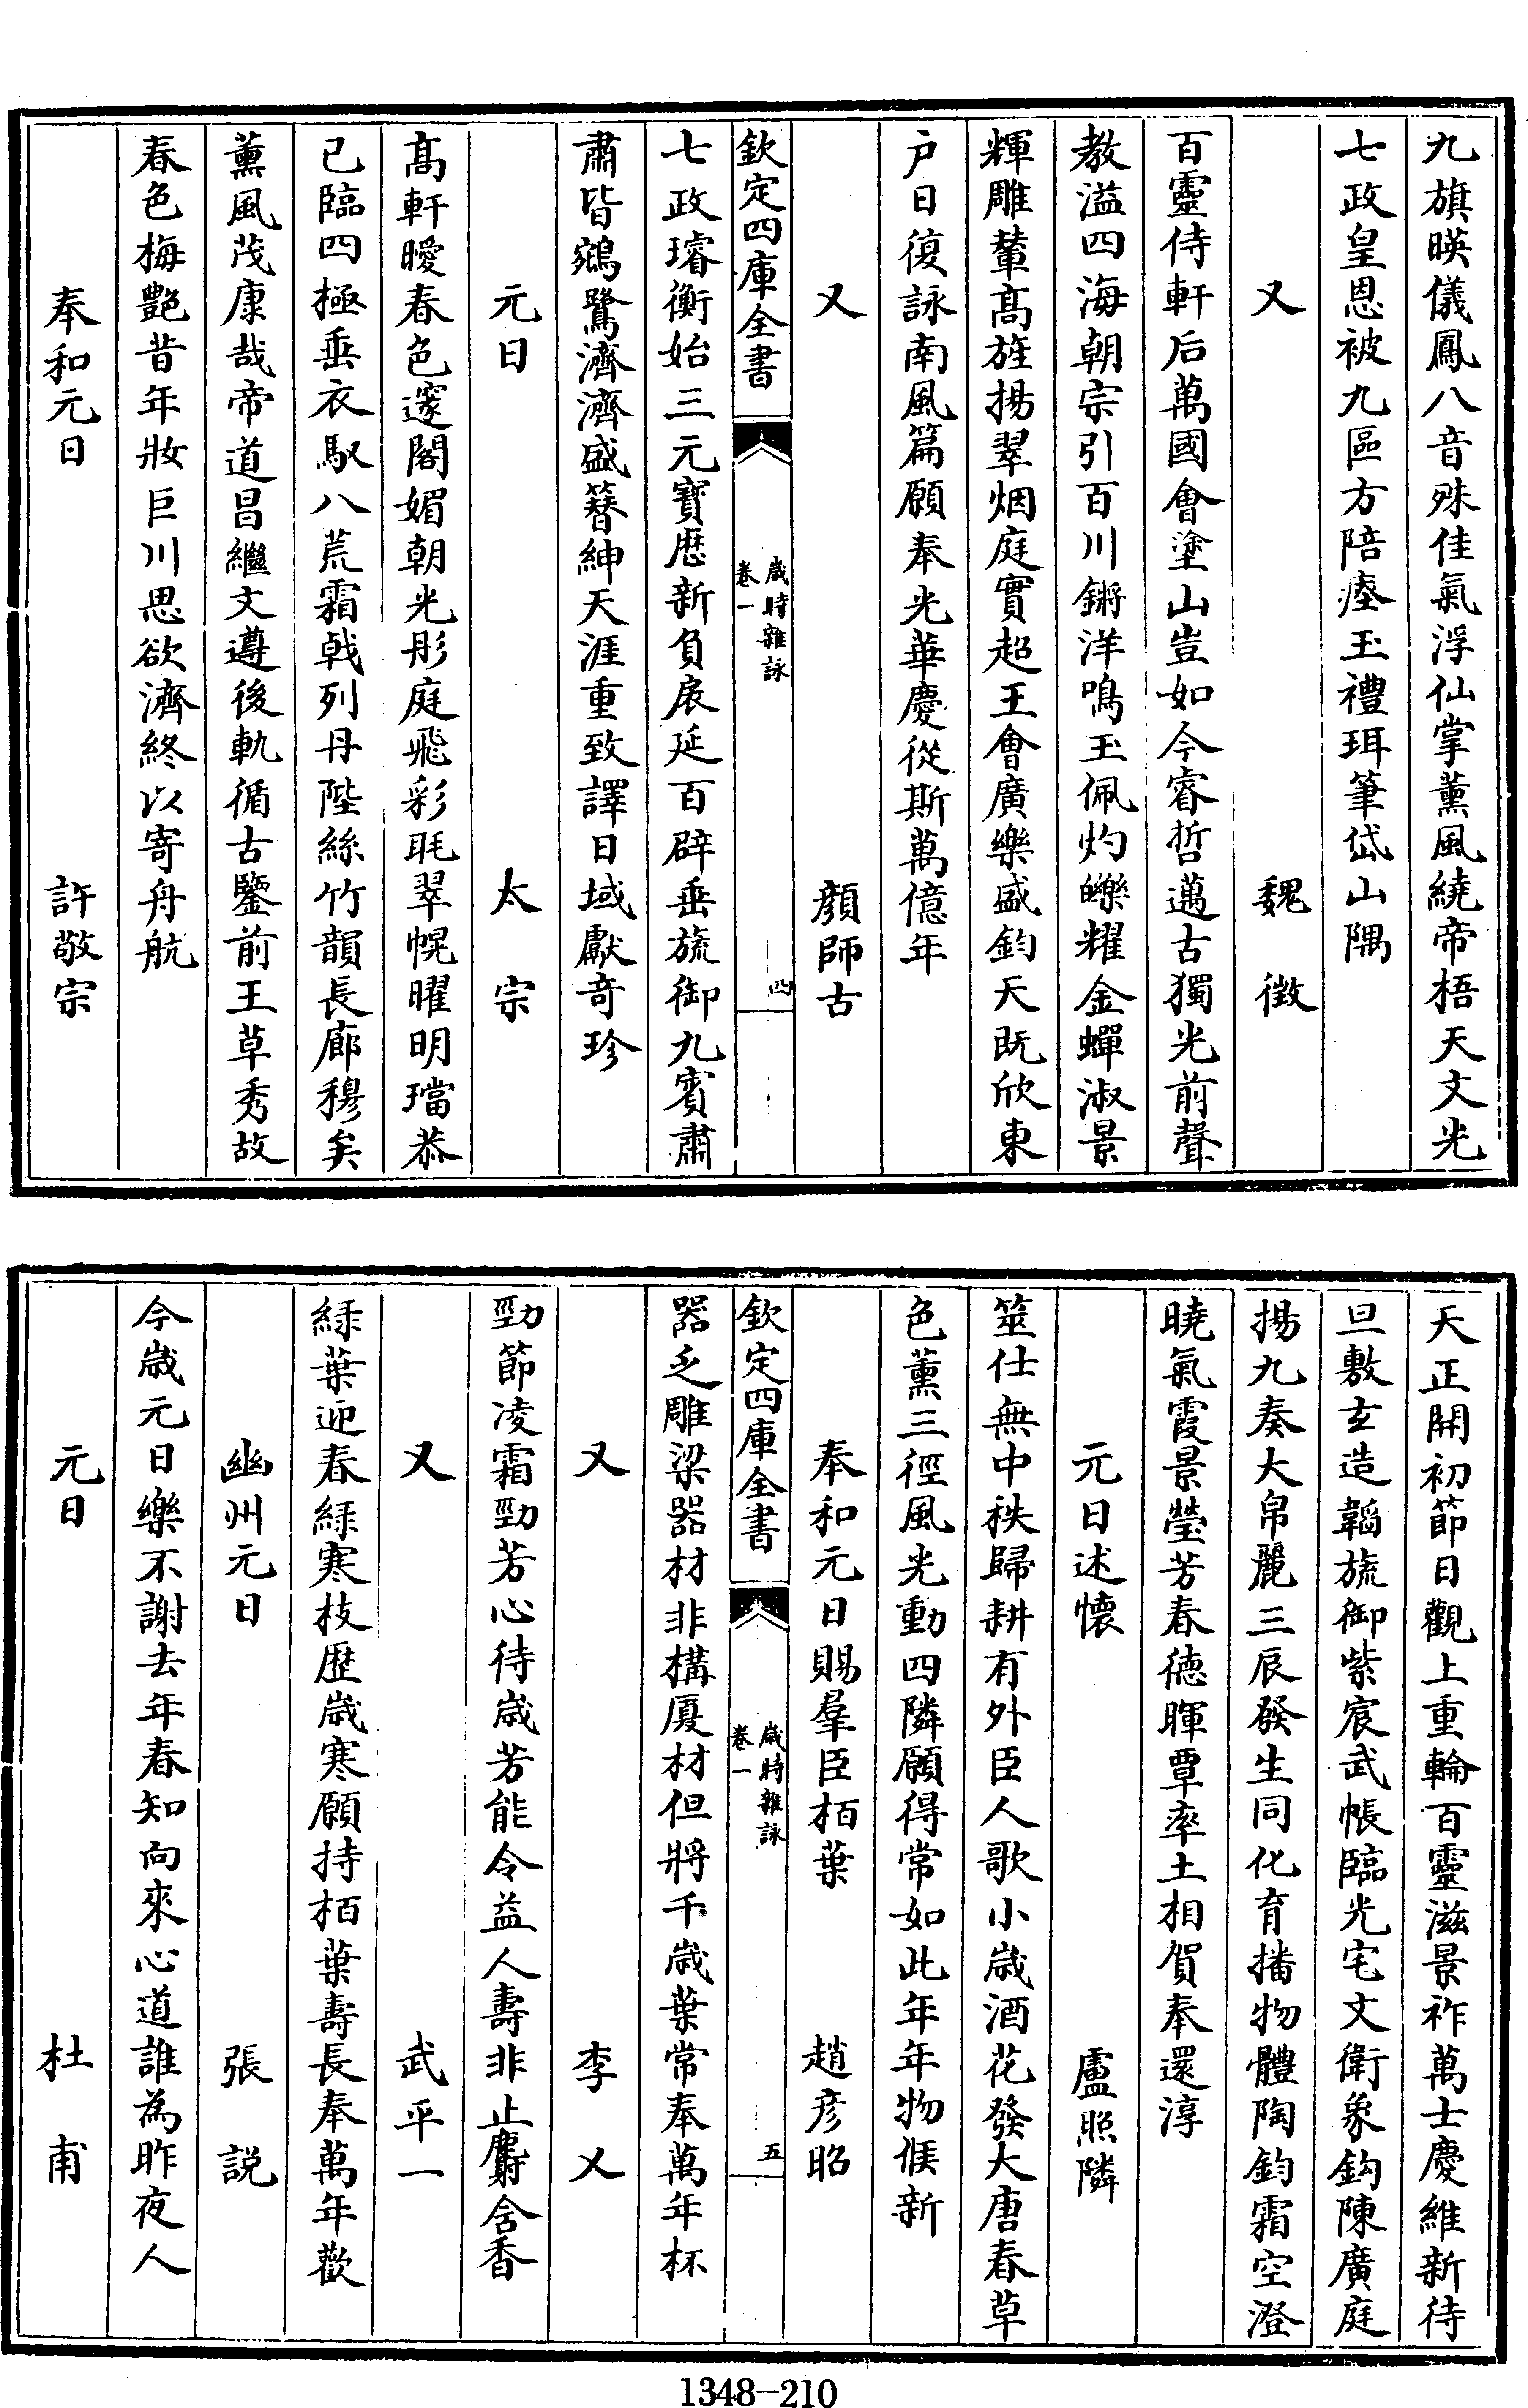 九旗暎儀鳳八音殊佳氣浮仙掌薰風繞帝梧天文光
七政皇恩被九區方陪瘞玉禮珥筆岱山隅
又 魏徴
百靈侍軒后萬國會塗山豈如今睿哲邁古獨光前聲
教溢四海朝宗引百川鏘洋鳴玉佩灼爍耀金蟬淑景
輝雕輦髙旌揚翠烟庭實超王會廣樂盛鈞天既欣東
户日復詠南風篇願奉光華慶從斯萬億年
又 顔師古
欽定四庫全書 歲時雜詠 卷一 四
七政璿衡始三元寳厯新負扆延百辟垂旒御九賓肅
肅皆鵷鷺濟濟盛簪紳天涯重致譯日域獻竒珍
元日 太宗
髙軒曖春色邃閣媚朝光彤庭飛彩毦翠幌曜明璫恭
已臨四極垂衣馭八荒霜戟列丹陛絲竹韻長廊穆矣
薰風茂康哉帝道昌繼文遵後軌循古鑒前王草秀故
春色梅艶昔年妝巨川思欲濟終以寄舟航
奉和元日 許敬宗
天正開初節日觀上重輪百靈滋景祚萬士慶維新待
旦敷玄造韜旒御紫宸武帳臨光宅文衛象鈎陳廣庭
揚九奏大帛麗三辰發生同化育播物體陶鈞霜空澄
曉氣霞景瑩芳春德暉覃率土相賀奉還淳
元日述懷 盧照隣
筮仕無中秩歸耕有外臣人歌小歲酒花發大唐春草
色薰三徑風光動四隣願得常如此年年物候新
奉和元日賜羣臣栢葉 趙彦昭
欽定四庫全書 歲時雜詠 卷一 五
器乏雕梁器材非構厦材但將千歲葉常奉萬年杯
又 李乂
勁節凌霜勁芳心待歲芳能令益人壽非止麝含香
又 武平一
緑葉迎春緑寒枝歴歲寒願持栢葉壽長奉萬年歡
幽州元日 張説
今歲元日樂不謝去年春知向來心道誰為昨夜人
元日 杜甫
1348-210